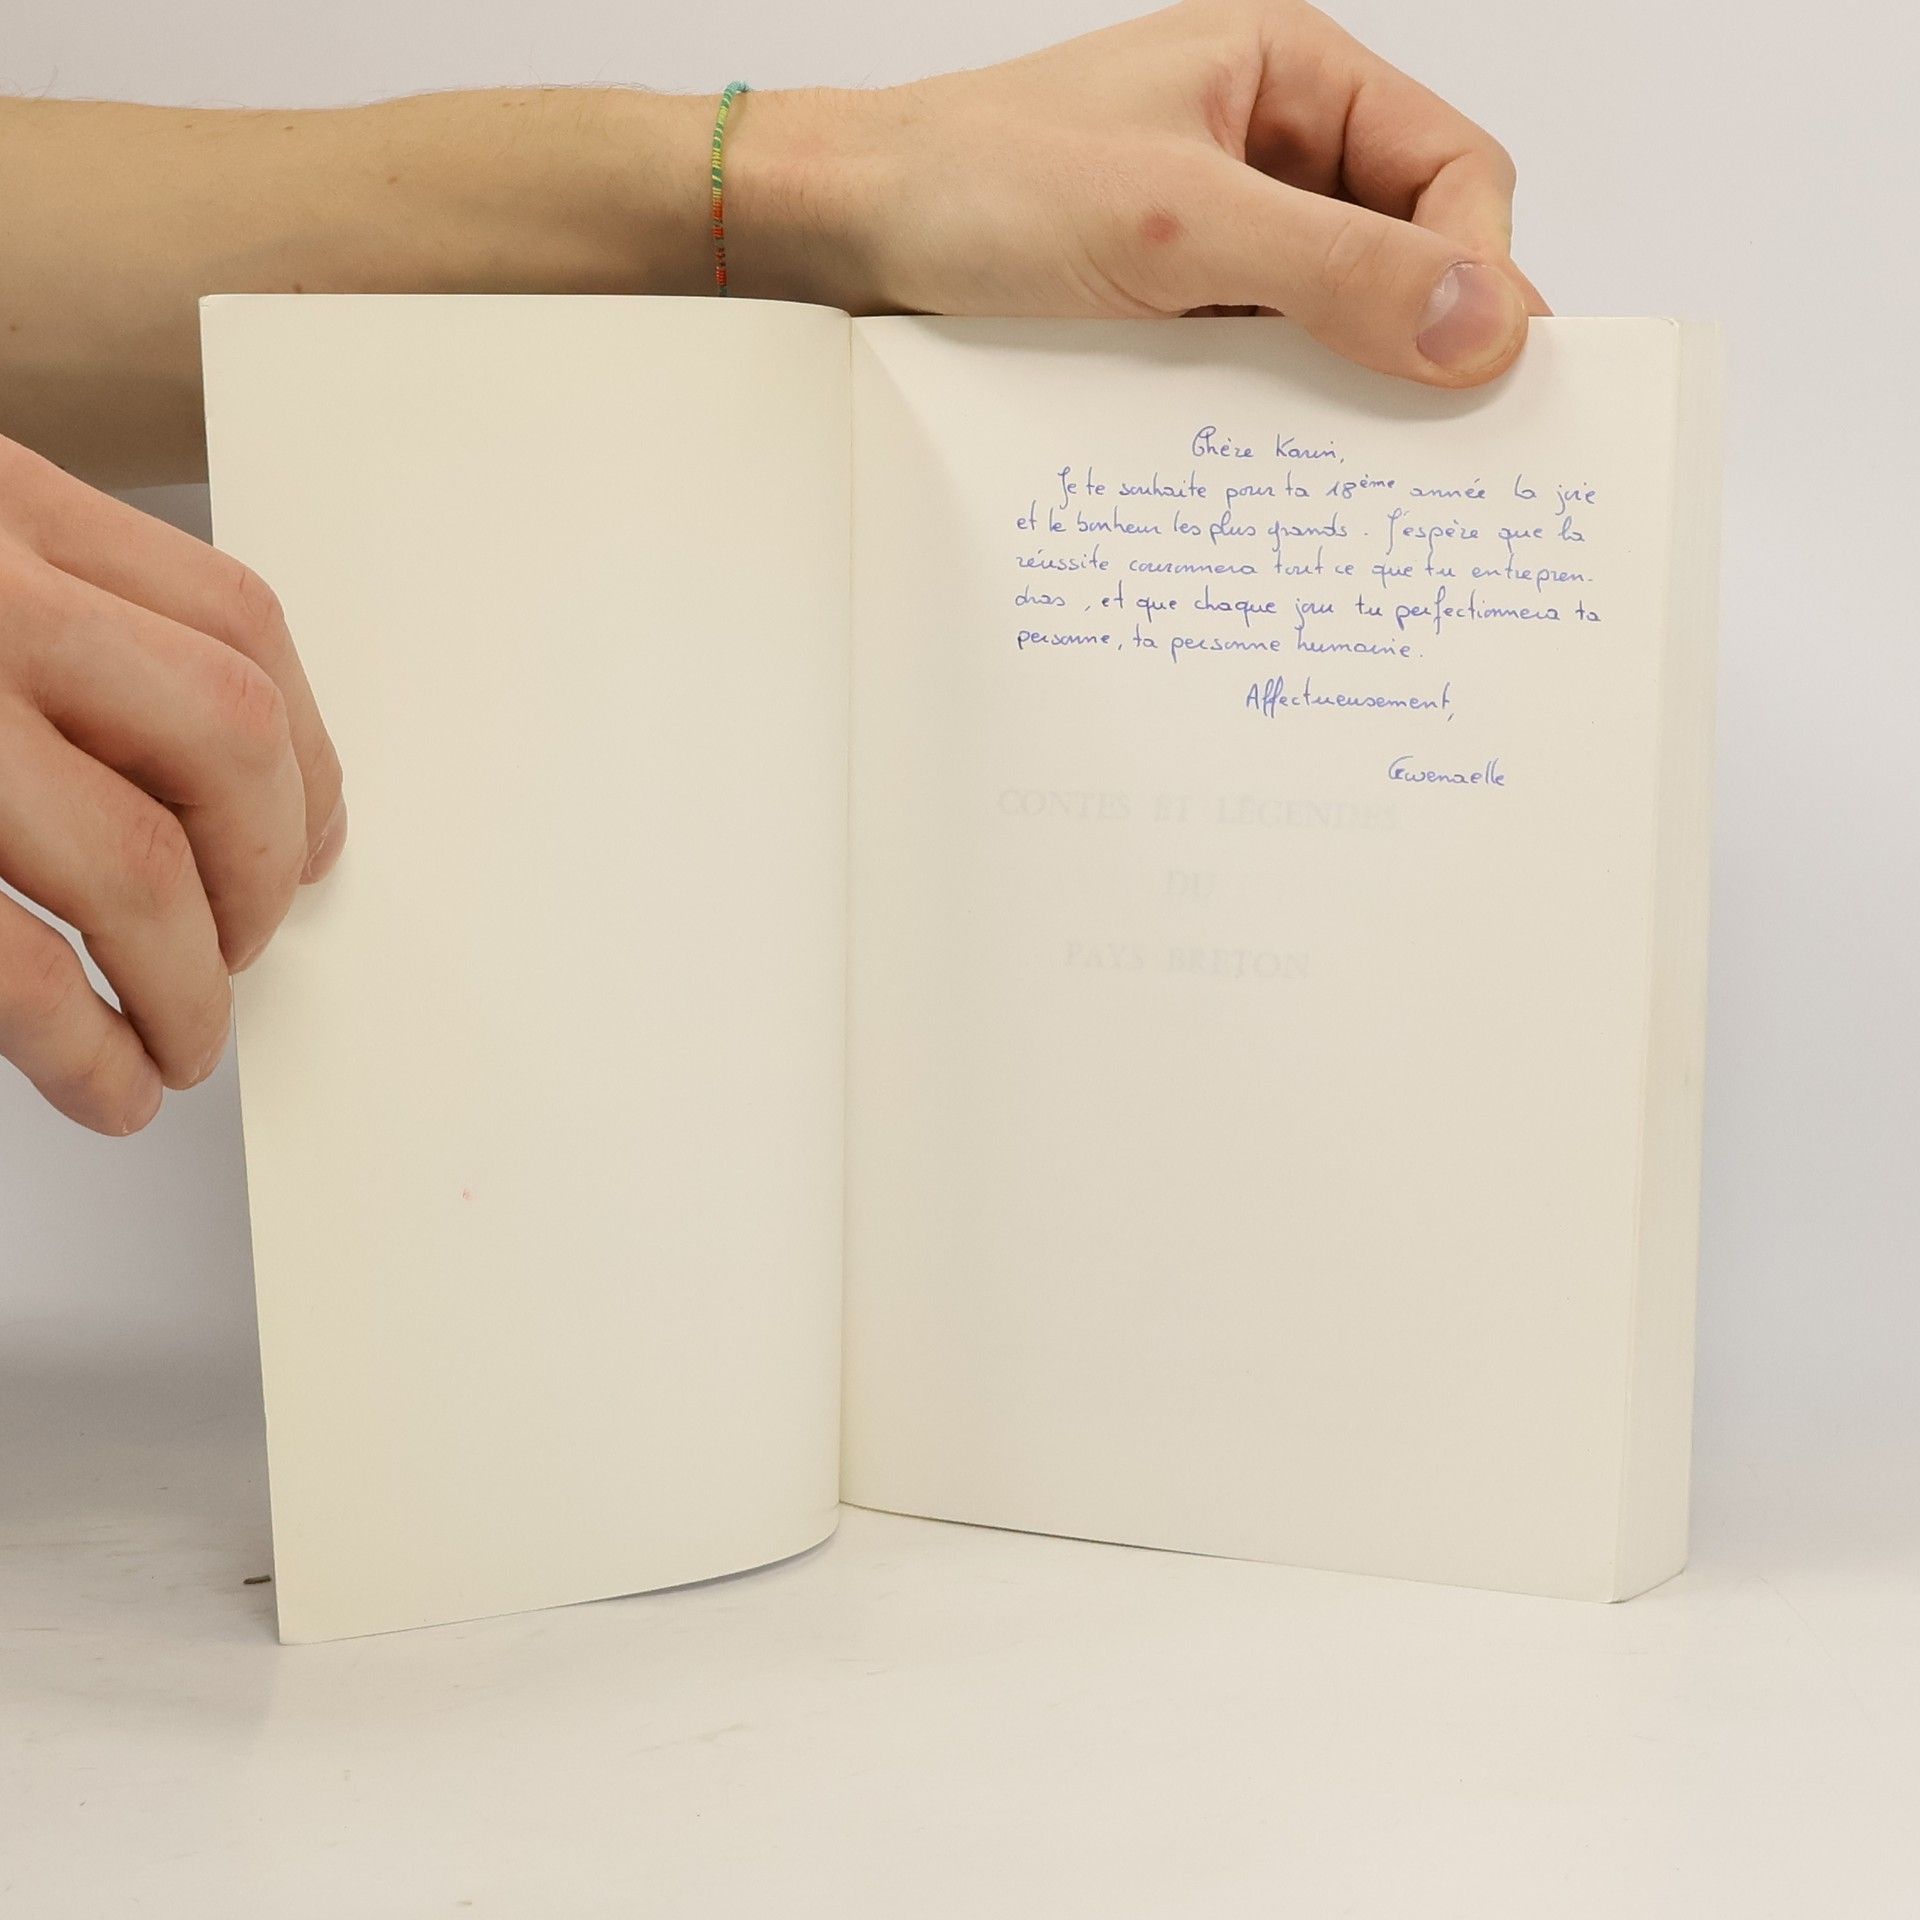 Chère Karin,
Je te souhaite pour ta 18ème année la joie
et le bonheur les plus grands. J'espère que la
réussite couronnera tout ce que tu entrepren-
dras, et que chaque jour tu perfectionnera ta
personne, ta personne humaine.
Affectueusement,
Gwenaelle
CONTES ET LÉGENDES
DU
PAYS BRETON